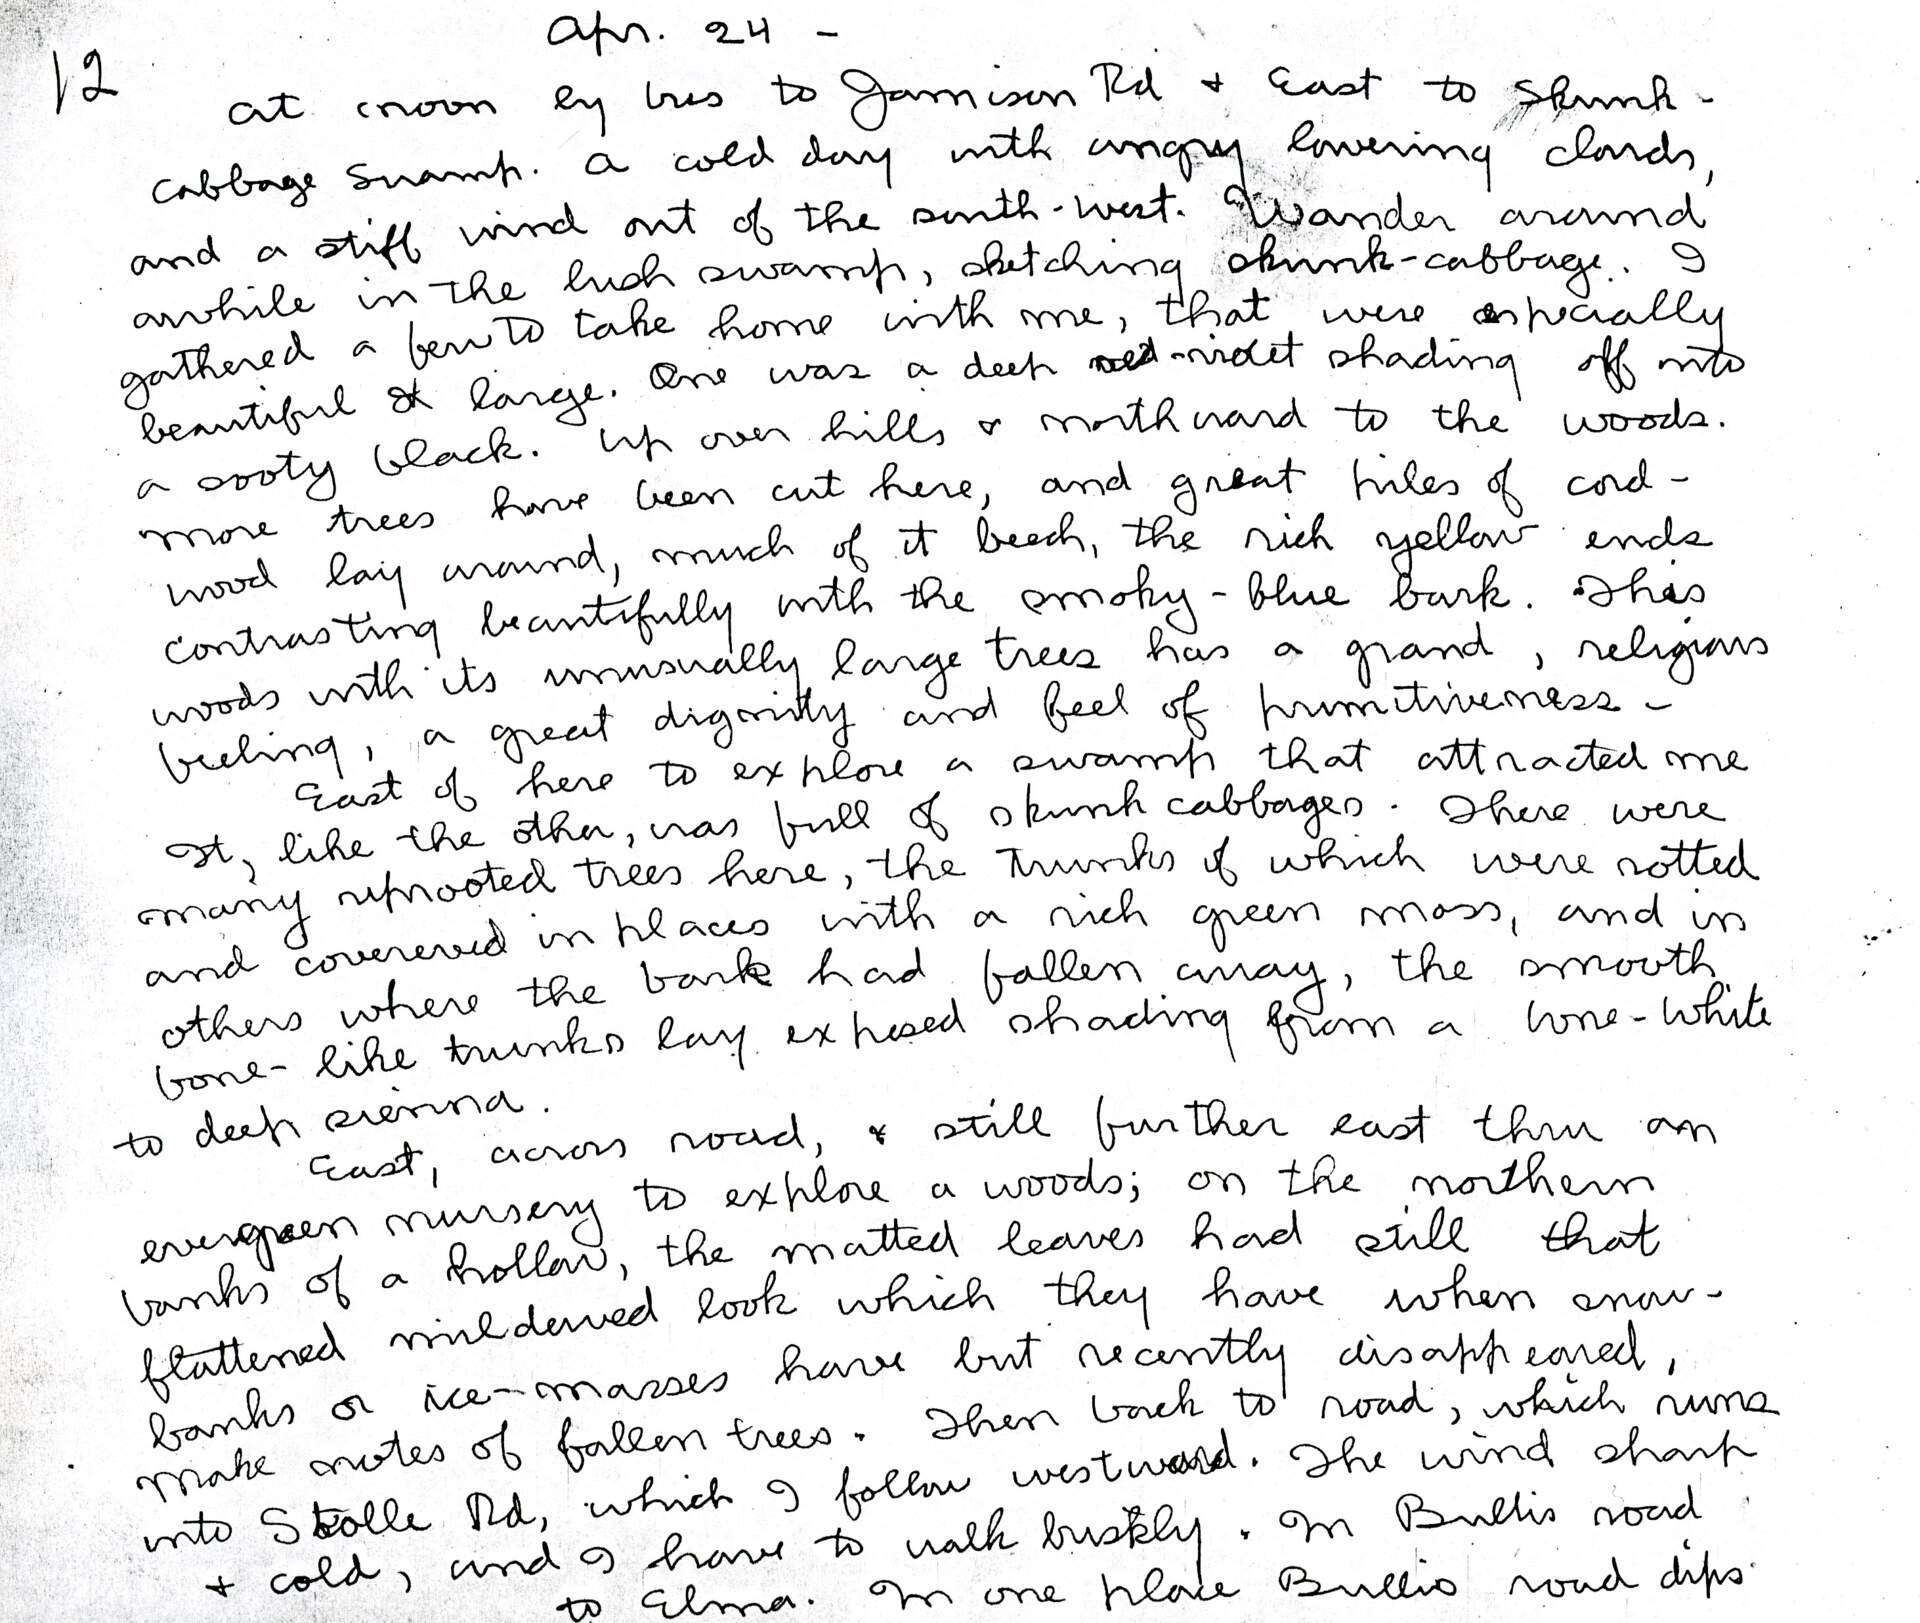 Apr. 24 -
12
At noon by bus to Jamison Rd + East to Skunk-
cabbage swamp. A cold day with angry lowering clouds,
and a stiff wind out of the south-west. Wander around
awhile in the lush swamp, sketching skunk-cabbage. I
gathered a few to take home with me, that were especially
beautiful & large. One was a deep red-violet shading off into
a sooty black. Up over hills & northward to the woods.
More trees have been cut here, and great piles of cord-
wood lay around, much of it beech, the rich yellow ends
contrasting beautifully with the smoky-blue bark. This
woods with its unusually large trees has a grand, religious
feeling, a great dignity and feel of primitiveness -
East of here to explore a swamp that attracted me
It, like the other, was full of skunk cabbages. There were
many uprooted trees here, the trunks of which were rotted
and coverered in places with a rich green moss, and in
others where the bark had fallen away, the smooth
bone-like trunks lay exposed shading from a bone-white
to deep sienna.
East, across road, & still further east thru an
evergreen nursery to explore a woods; on the northern
banks of a hollow, the matted leaves had still that
flattened mildewed look which they have when snow-
banks or ice-masses have but recently disappeared,
Make notes of fallen trees. Then back to road, which runs
into Stolle Rd, which I follow westward. The wind sharp
+ cold, and I have to walk briskly. On Bullis road
to Elma. In one place Bullis road dips